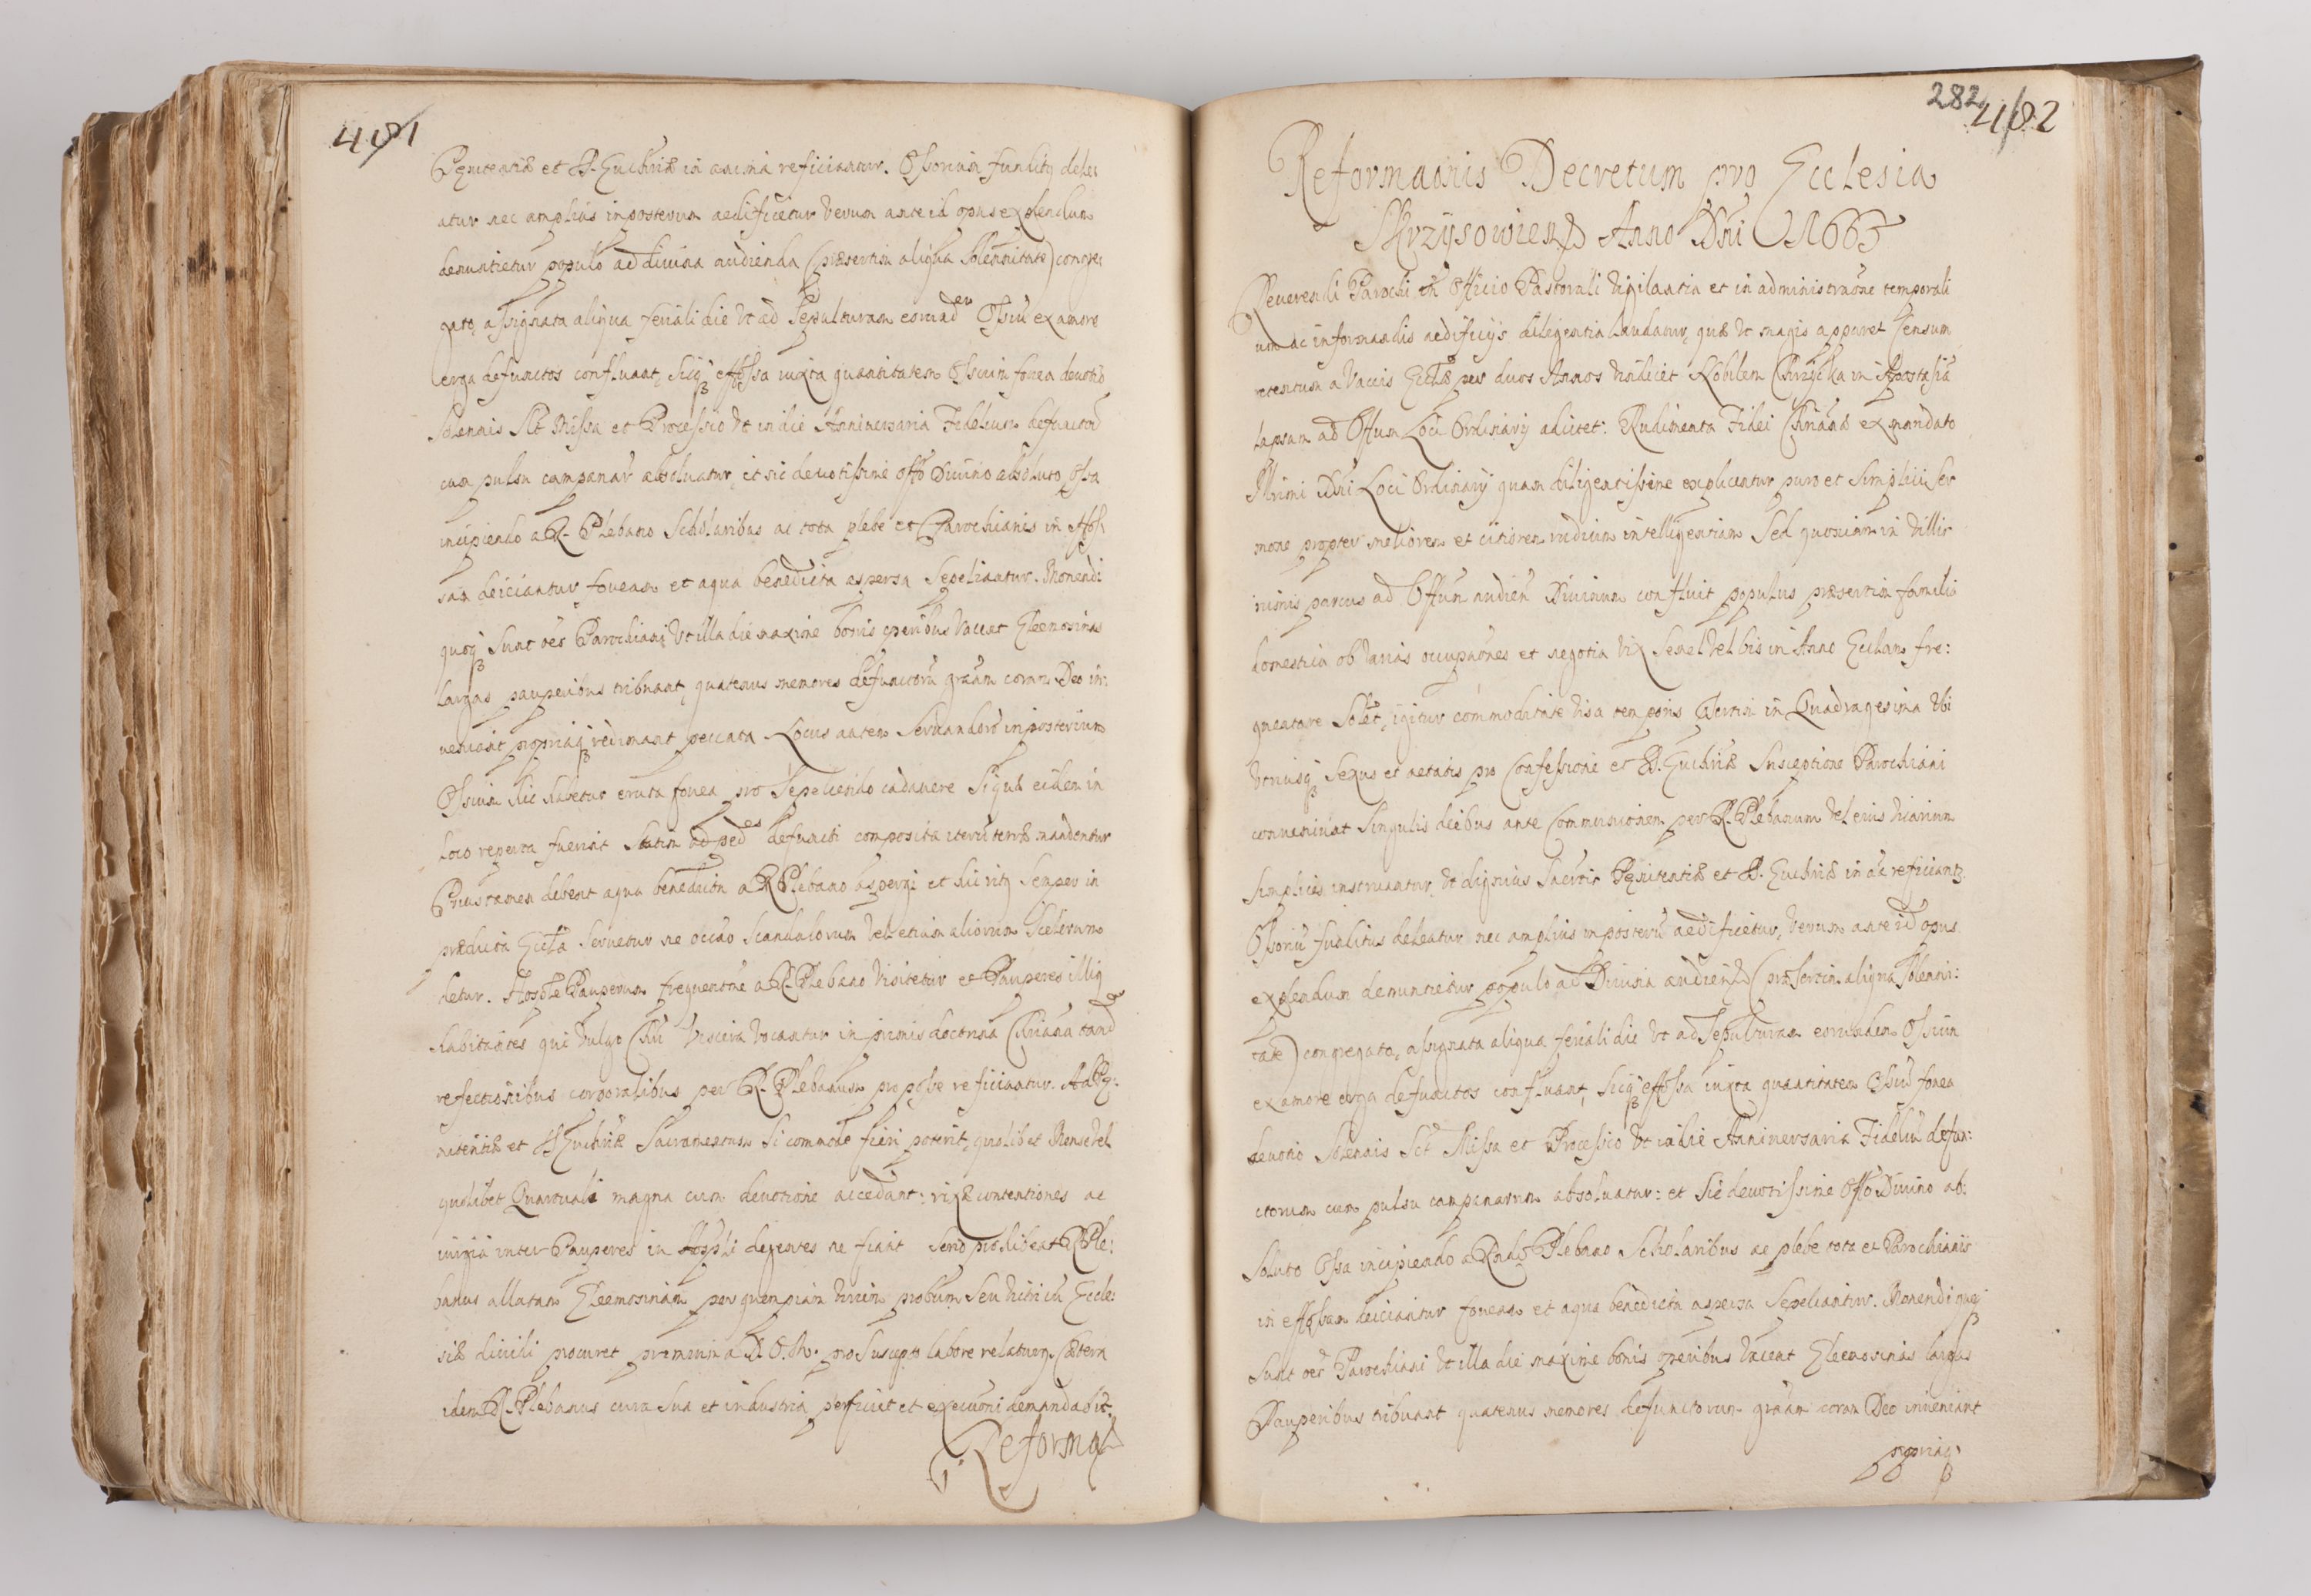 481
Pęnitentiæ et SS. Euchriæ in anima reficiantur. Ossorium funditq dele
atur nec amplius inposterum aedificetur verum ante id opus explendum
denuntietur populo ad divina audienda (præsertim aliqua solennitate) congre
gato, assignata aliqua feriali die Vt ad Sepulturam eorundem Ossiũ ex amore
erga defunctos confluant, sicq effossa iuxta quantitatem Ossium fovea devotio
Solennis Sct Missa et Processio Vt in die Anniversaria Fidelium defunctorũ
cum pulsu campanar absoluatur, et sic devotissime offo Diuino absoluto Ossa
incipiendo a R. Plebano Scholaribus ac tota plebe et Parochianis in effos
sam deiciantur foueam et aqua benedicta aspersa Sepeliantur. Monendi
quoq Sunt oes Parochiani Vt illa die maxime bonis operibus Vacent Eleemosinas
largas pauperibus tribuant, quatenus memores defunctorũ grãam coram Deo in:
veniant propriaq redimant peccata Locus autem Seruandorũ inposterum
Ossium hic habetur eruta fouea pro Sepeliendo cadauere Si quæ eidem in
loco reperta fuerint statim ad pedes defuncti composita iterũ terræ mandentur
Prius tamen debent aqua benedicta a R Plebano aspergi et hic ritq Semper in
prædicta Eccla Seruetur ne occão Scandalorum Vel etiam aliorum Scelerum
detur. Hosple Pauperum frequentne a R. Plebano Visitetur et Pauperes illiq
habitantes qui Vulgo Chri Viscera Vocantur in primis doctrina Chriana tandem
refectionibus corporalibus per R. Plebanum pro posse reficiantur. Ad Pę:
nitentiæ et SS Euchriæ Sacramentum Si commode fieri poterit, quolibet Mense Vel
quolibet Quartuali magna cum deuotione accedant: rixæ contentiones ac
iurgia inter Pauperes in Hosphi degentes ne fiant Serio prohibeat R Ple:
banus allatam Eleemosinam per quempiam Virum probum Seu Vitricũ Eccle:
siæ diuidi procuret præmium a D. O. M. pro Suscepto labore relaturq. Cætera
idem R. Plebanus cura sua et industria perficiet et execuoni demandabit.
Reforma
282
482
Reformaonis Decretum pro Ecclesia
Skrzysowien Anno Dñi 1665
Reuerendi Parochi in Officio Pastorali Vigilantia et in administraõne temporali
um ac informandis aedificijs diligentia laudatur, quæ Vt magis appareat Censum
retentum a Vaccis Ecclæ per duos Annos Vindicet Nobilem in Apostasiã
lapsam ad Offum Loci Ordinarij adcitet: Rudimenta Fidei Chrianæ ex mandato
Illrimi Dñi Loci Ordinarij quam diligentissime explicentur puro et Simplici Ser
mone propter meliorem et citiorem rudium intelligentiam Sed quoniam in Villis
nimis parcus ad Offum audien Diuinum confluit populus præsertim familia
domestica ob Varias occupaõnes et negotia Vix Semel Vel bis in Anno Ecclam fre:
quentare Solet, igitur commoditate Visa temporis præsertim in Quadragesima Vbi
Vtriusq Sexus et aetatis pro Confessione et SS. Euchriæ Susceptione Parochiani
conueniunt Singulis diebus ante Communionem per R. Plebanum Vel eius Vicarium
Simplices instruantur, Vt dignius Sacrtis Pęnitentiæ et SS. Euchriæ in ãa reficiantq.
Ossoriũ funditus deleatur nec amplius in posterũ aedificetur, Verum ante id opus
explendum denuntietur populo ad Diuina audien (præsertim aliqua Solenni:
tate) congregato, assignata aliqua feriali die Vt ad Sepulturam eorundem Ossium
ex amore erga defunctos confluant, Sicq effossa iuxta quantitatem Ossiũ fouea
deuotio Solennis Sct Missa et Processio Vt in die Anniversaria Fideliũ defun:
ctorum cum pulsu campanarum absoluatur: et Sic deuotissime Offo Diuino ab:
Soluto Ossa incipiendo a Rndo Plebano Scholaribus ac plebe tota et Parochianis
in effossam deiciantur foueam et aqua benedicta aspersa Sepeliantur. Monendi quoq
Sunt oes Parochiani Vt illa die maxime bonis operibus Vacent Eleemosinas largas
Pauperibus tribuant quatenus memores defunctorum grãam coram Deo inueniant
propriaq